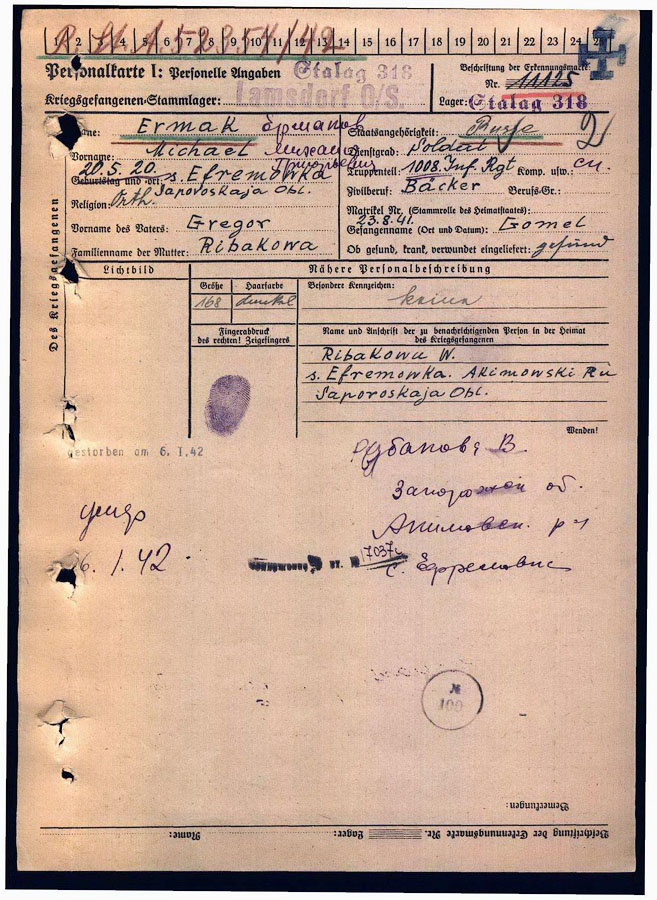 R. St. A. 52354/42
1 2 3 4 5 6 7 8 9 10 11 12 13 14 15 16 17 18 19 20 21 22 23 24 25
Personalkarte I: Personelle Angaben Stalag 318
Beschriftung der Erkennungsmarke
Nr. 11125
Kriegsgefangenen-Stammlager: Lamsdorf O/S.
Lager: Stalag 318
Name: Ermak Ермаков
Staatsangehörigkeit: Russe
Vorname: Michael Михаил
Dienstgrad: Soldat
Григорьевич
20.5.20. s. Efremowka
Geburtstag und -ort:
Truppenteil: 1008. Inf. Rgt Komp. usw.: сп.
Saporoskaja Obl.
Religion: Orth.
Zivilberuf: Bäcker Berufs-Gr.:
Matrikel Nr. (Stammrolle des Heimatstaates):
Vorname des Vaters: Gregor
23.8.41.
Gefangennahme (Ort und Datum): Gomel
Familienname der Mutter: Ribakowa
Ob gesund, krank, verwundet eingeliefert: gesund
Des Kriegsgefangenen
Lichtbild
Nähere Personalbeschreibung
Größe Haarfarbe Besondere Kennzeichen:
168 dunkel keine
Fingerabdruck
des rechten! Zeigefingers
Name und Anschrift der zu benachrichtigenden Person in der Heimat
des Kriegsgefangenen
Ribakowa W.
s. Efremowka. Akimowski
Saporoskaja Obl.
Wenden!
gestorben am 6.1.42
Рыбакова В.
Запорожской об.
умер
6.1.42
17037
с. Ефремовка
№
100
Bemerkungen:
Beschriftung der Erkennungsmarke Nr. Lager: Name: